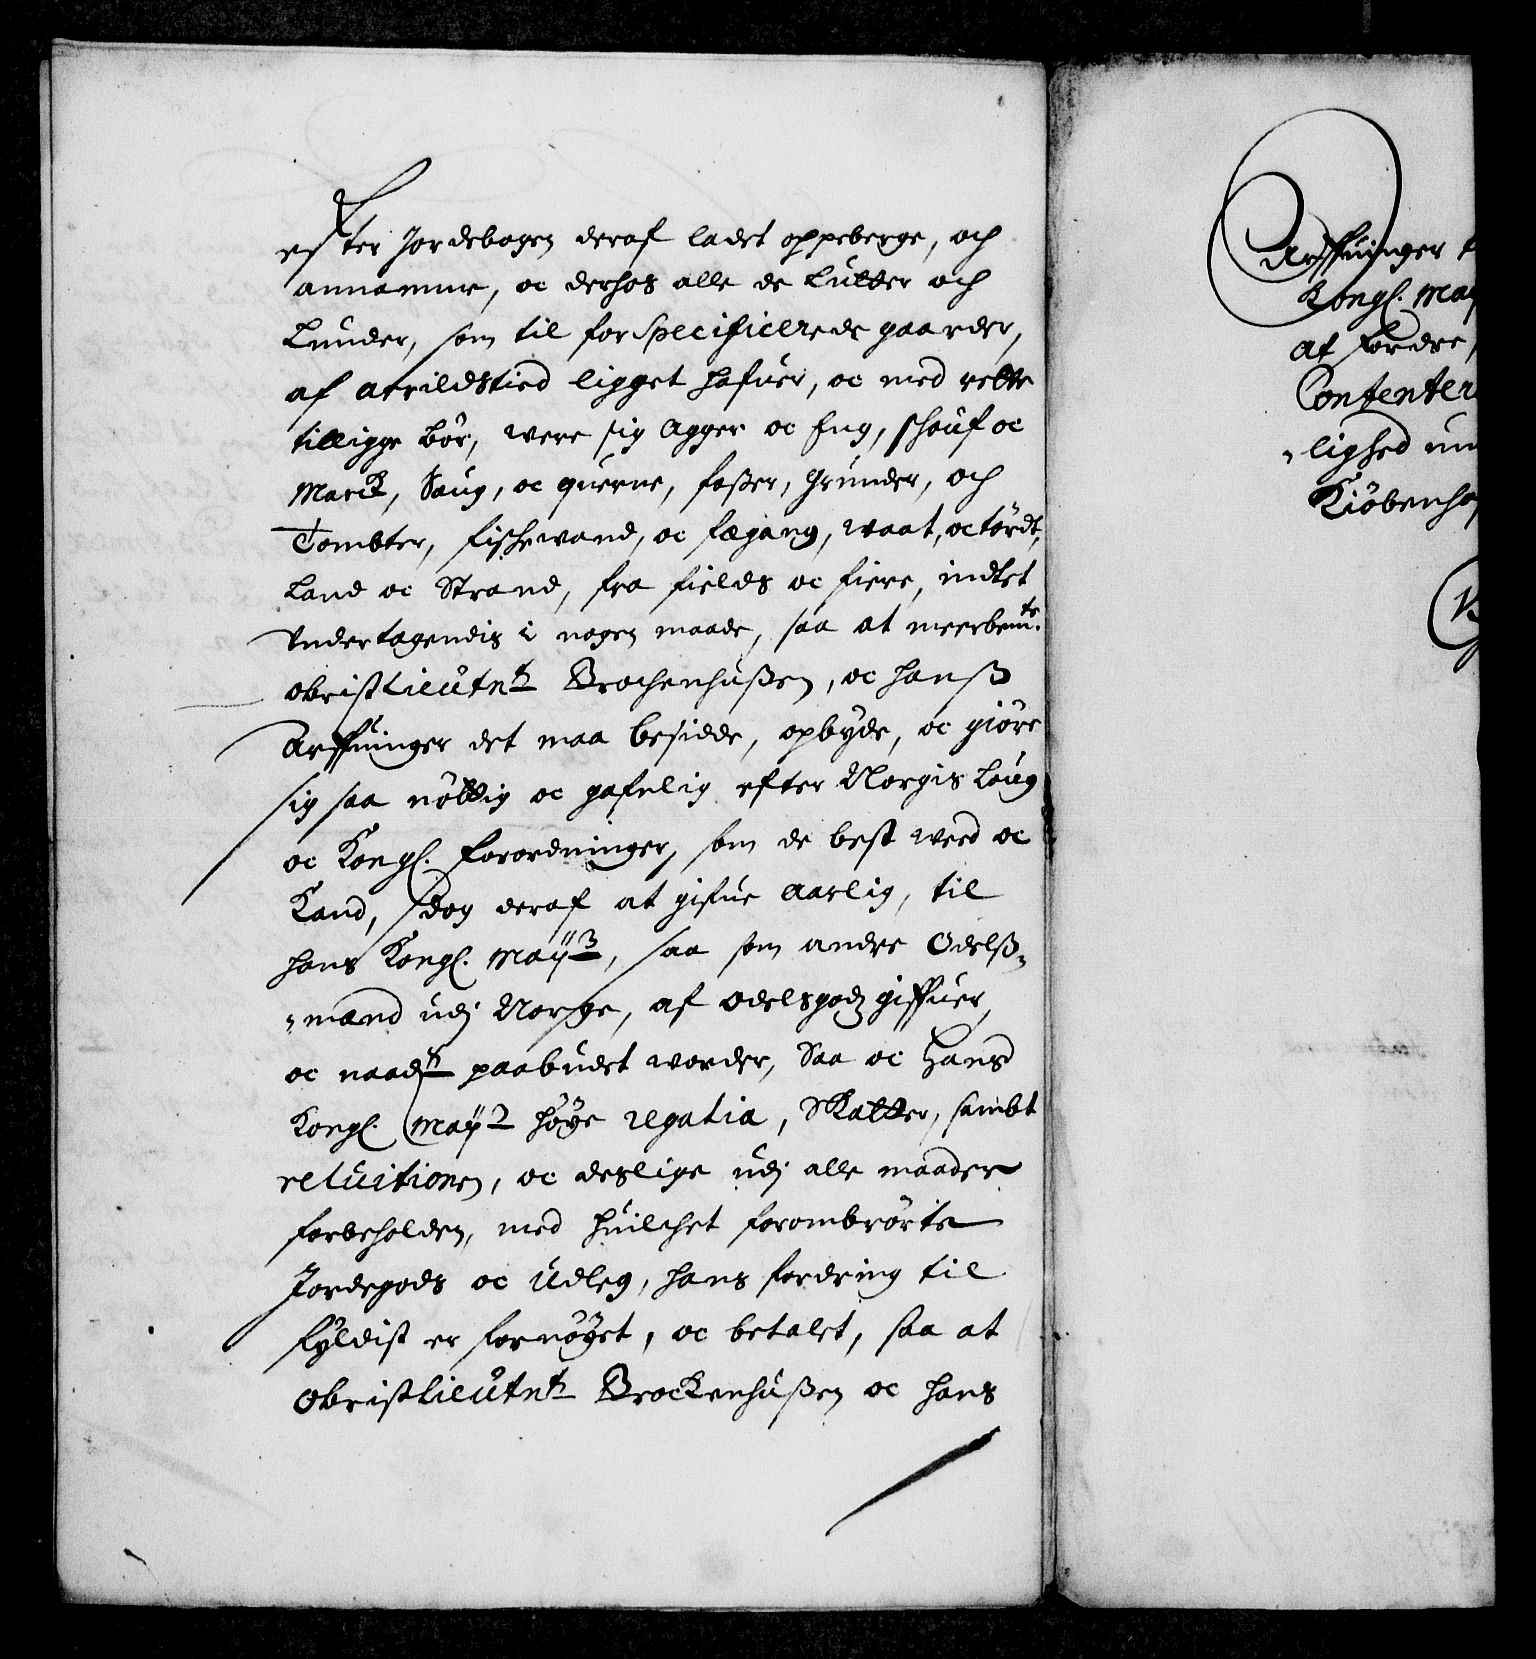 efter Jordebogen deraf ladet oppeberge, och
annamme, oc derhos alle de Lutter och
Lunder, som til for Specificerede gaarder,
af arrildstied ligget hafuer, oc med rette
tilligge bör, were sig Agger oc Eng, skouf oc
Marck, Saug, oc querne, foßer, grunder, och
Tombter, fischewand, oc fægang, waat, oc tördt,
Land oc Strand, fra fields oc fiere, indtet
Undertagendis i nogen maade, saa at meerbemte.
obristLieutnt Brochenhußen, oc hanß
Arffuinger det maa besidde, opbyde, oc giöre
sig saa nöttig oc gafnlig efter Norgis Loug
oc Kongl. Forordninger, som de best weed oc
Kand, dog deraf at gifue Aarlig, til
hans Kongl. Maytz, saa som andre Odelß-
mænd udj Norge, af odelsgodz giffuer,
oc naadt paabudet worder, Saa oc Hans
Kongl. Maytz höye regalia, Skatter, sambt
reluitionen, oc deslige udj alle maader
forbeholden, med huilchet forombrörte
Jordegods oc Udleg, hans fordring til
fyldist er fornöyet, oc betalet, saa at
ObristLieutnt Brockenhußen oc hans
Arffuinger
Kongl. May
at fordre,
Contenter
lighed
Kiöbenha